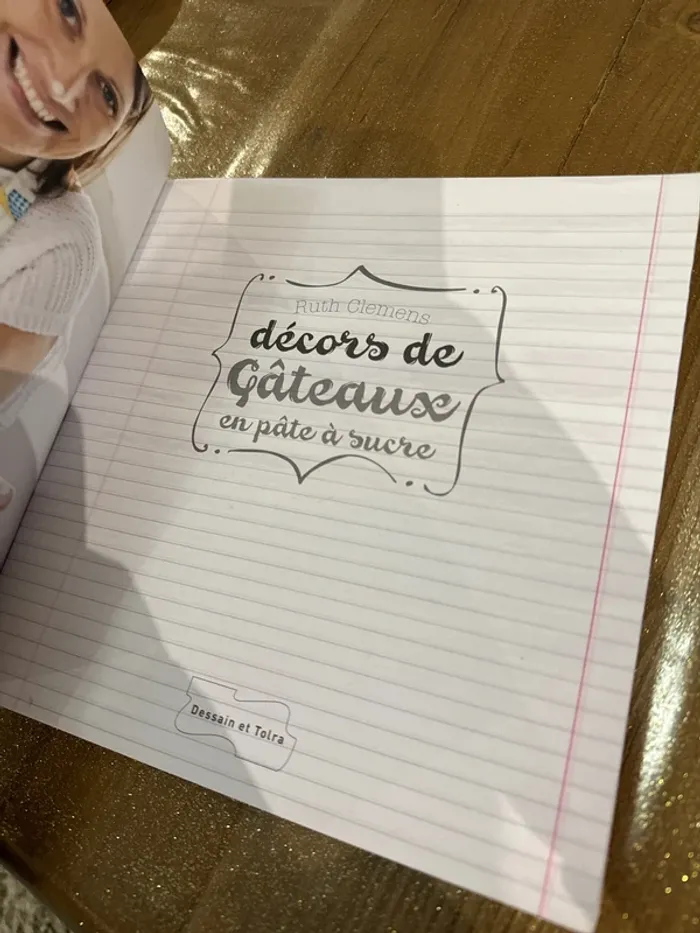 Ruth Clemens
décors de
Gâteaux
en pâte à sucre
Dessain et Tolra